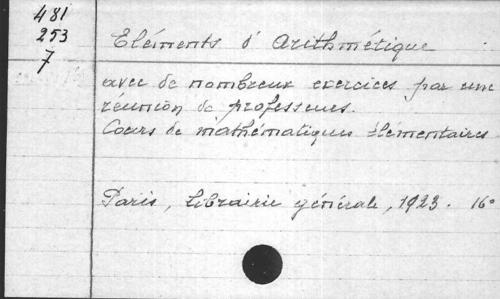 481
253
7
Eléments d'Arithmétique
avec de nombreux exercices par une
réunion de professeurs.
Cours de mathématiques élémentaires.
Paris, Librairie générale, 1923. 16°